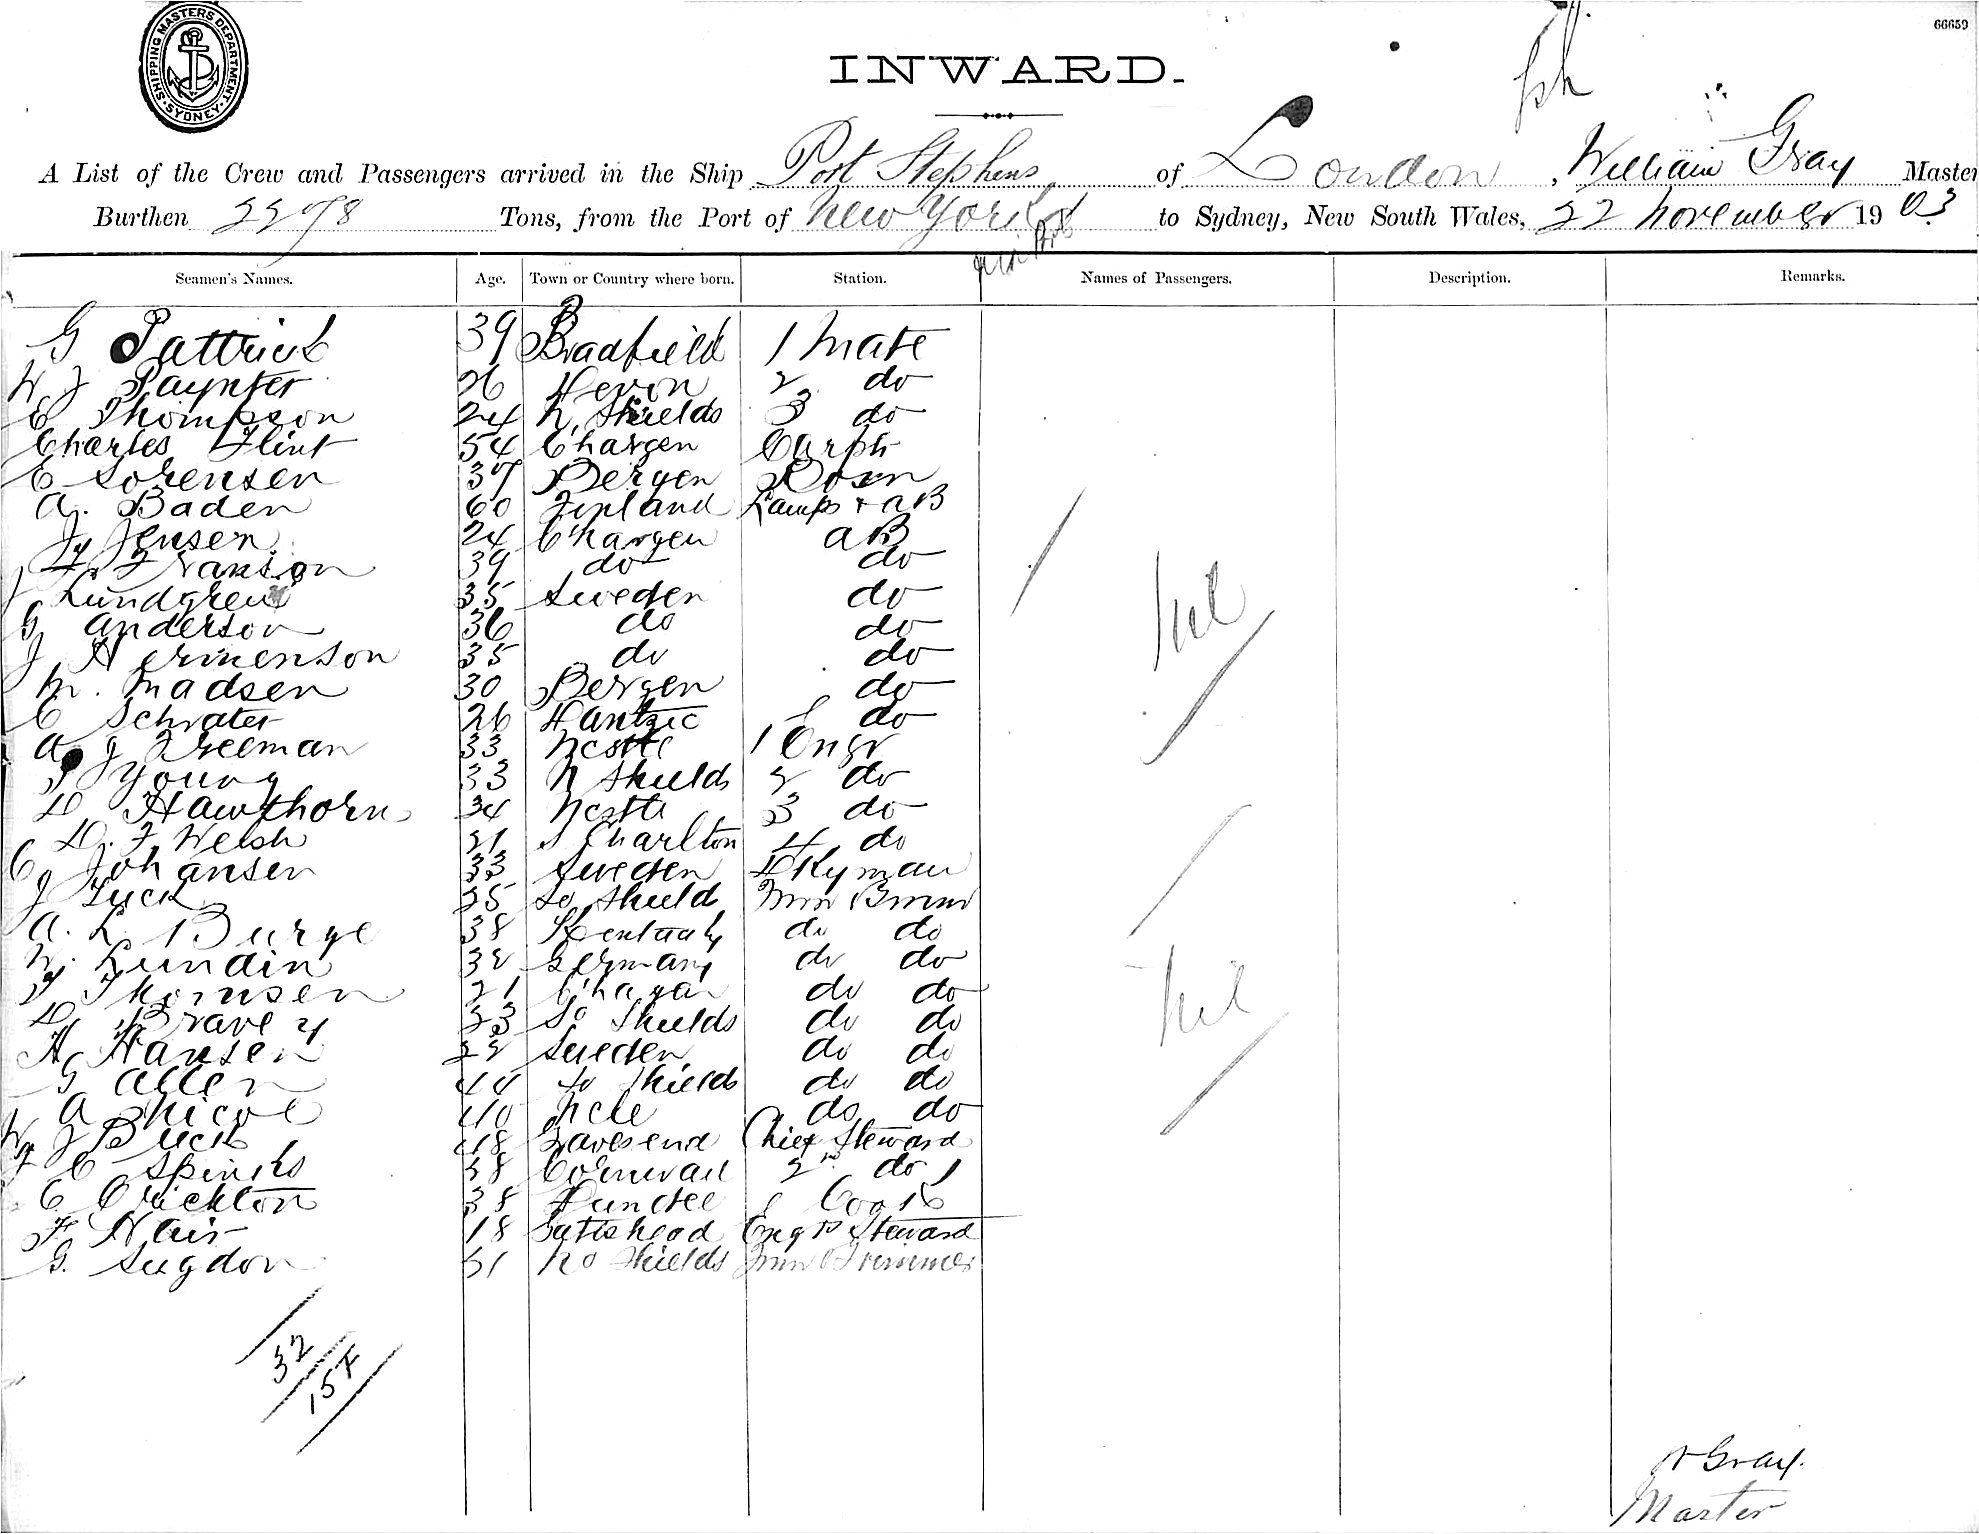 SHIPPING MASTERS DEPARTMENT SYDNEY
66659
INWARD.
A List of the Crew and Passengers arrived in the Ship Port Stephens of London, William Gray Master
Burthen 2278 Tons, from the Port of New York to Sydney, New South Wales, 22 November 1903
Seamen's Names. Age. Town or Country where born. Station. Names of Passengers. Description. Remarks.
G Pattrick 39 Bradfield 1 Mate
W J Paynter 26 Devon 2 do
C Thompson 24 N. Shields 3 do
Charles Flint 54 C'hagen Carptr
C Sorensen 37 Bergen Bosn
A. Baden 60 Finland Lamps + AB
J Jensen 24 C'hagen AB
39 do do
J Lundgren 35 Sweden do
G Anderson 36 do do
J Hermenson 35 do do
M. Madsen 30 Bergen do
C Schrater 26 Dantzic do
A J Freeman 33 Ncstle 1 Engr
Young 33 N Shields 2 do
D Hawthorn 34 Ncstle 3 do
D. F. Welsh 21 S Charlton 4 do
C Johansen 33 Sweden Dkyman
J Luck 25 So Shield
A. L. Burge 38 Kentucky do do
N. Lundin 32 Germany do do
T Thomsen 21 C'hagan do do
D Bravey 33 So Shields do do
H Hansen 22 Sweden do do
G Allen 44 So Shields do do
A Nicol 40 Ncle do do
W J Buck 48 Gravesend Chief Steward
C Spinks 38 Cornwall 2nd do
C Crichton 38 Dundee Cook
F Hair 18 Gateshead Engrs Steward
G. Sugdon 31 No Shields Trimmer
Nil
Nil
32
154
W Gray.
Master